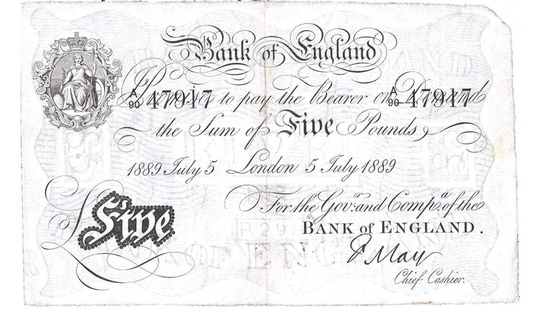 Bank of England
I Promise to pay the Bearer on Demand
A/90 47917 A/90 47917
the Sum of Five Pounds
1889 July 5 London 5 July 1889
For the Govr. and Compa. of the
BANK of ENGLAND.
Five
F May
Chief Cashier.